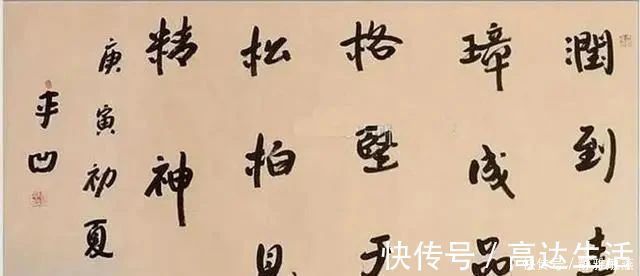 潤到圭
璋成品
格堅
松柏見
精神
庚寅初夏
平凹
快传号/高达生活